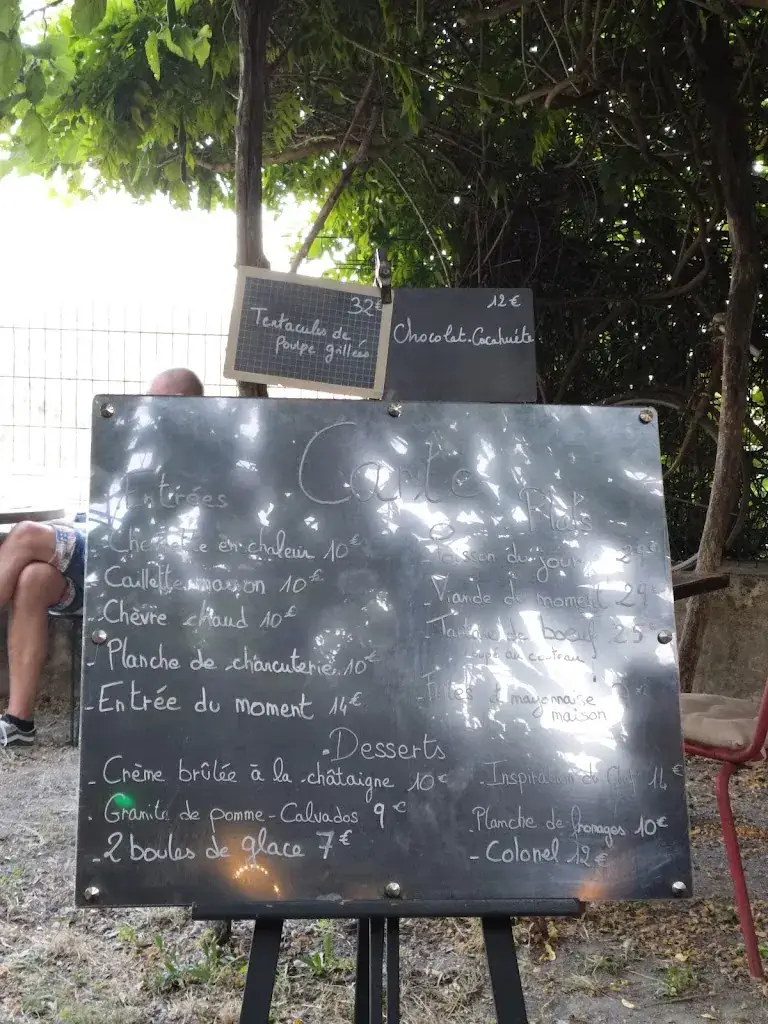 32€
Tentacules de
Poulpe grillées
12€
Chocolat-Cacahuète
Carte
Entrées
en chaleur 10€
- Caillette maison 10€
- Chèvre chaud 10€
- Planche de charcuterie 10€
- Entrée du moment 14€
Plats
- Poisson du jour
- Viande du moment 29
- de boeuf 25€
au couteau
et mayonnaise
maison
- Desserts
- Crème brûlée à la châtaigne 10€
- Granité de pomme-Calvados 9€
- 2 boules de glace 7€
- Inspiration du 14€
- Planche de fromages 10€
- Colonel 12€